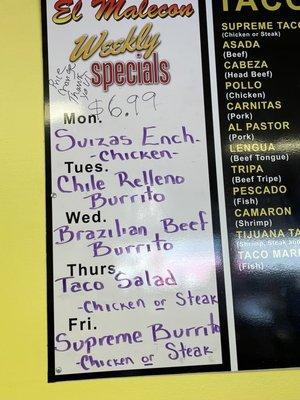 El Malecon
Weekly
specials
Price
Change
Thank
You
$6.99
Mon.
Suizas Ench.
-Chicken-
Tues.
Chile Relleno
Burrito
Wed.
Brazilian Beef
Burrito
Thurs
Taco Salad
-Chicken or Steak
Fri.
Supreme Burrito
-Chicken or Steak
TACO
SUPREME TACO
(Chicken or Steak)
ASADA
(Beef)
CABEZA
(Head Beef)
POLLO
(Chicken)
CARNITAS
(Pork)
AL PASTOR
(Pork)
LENGUA
(Beef Tongue)
TRIPA
(Beef Tripe)
PESCADO
(Fish)
CAMARON
(Shrimp)
TIJUANA TA
(Shrimp, Steak and
TACO MAR
(Fish)